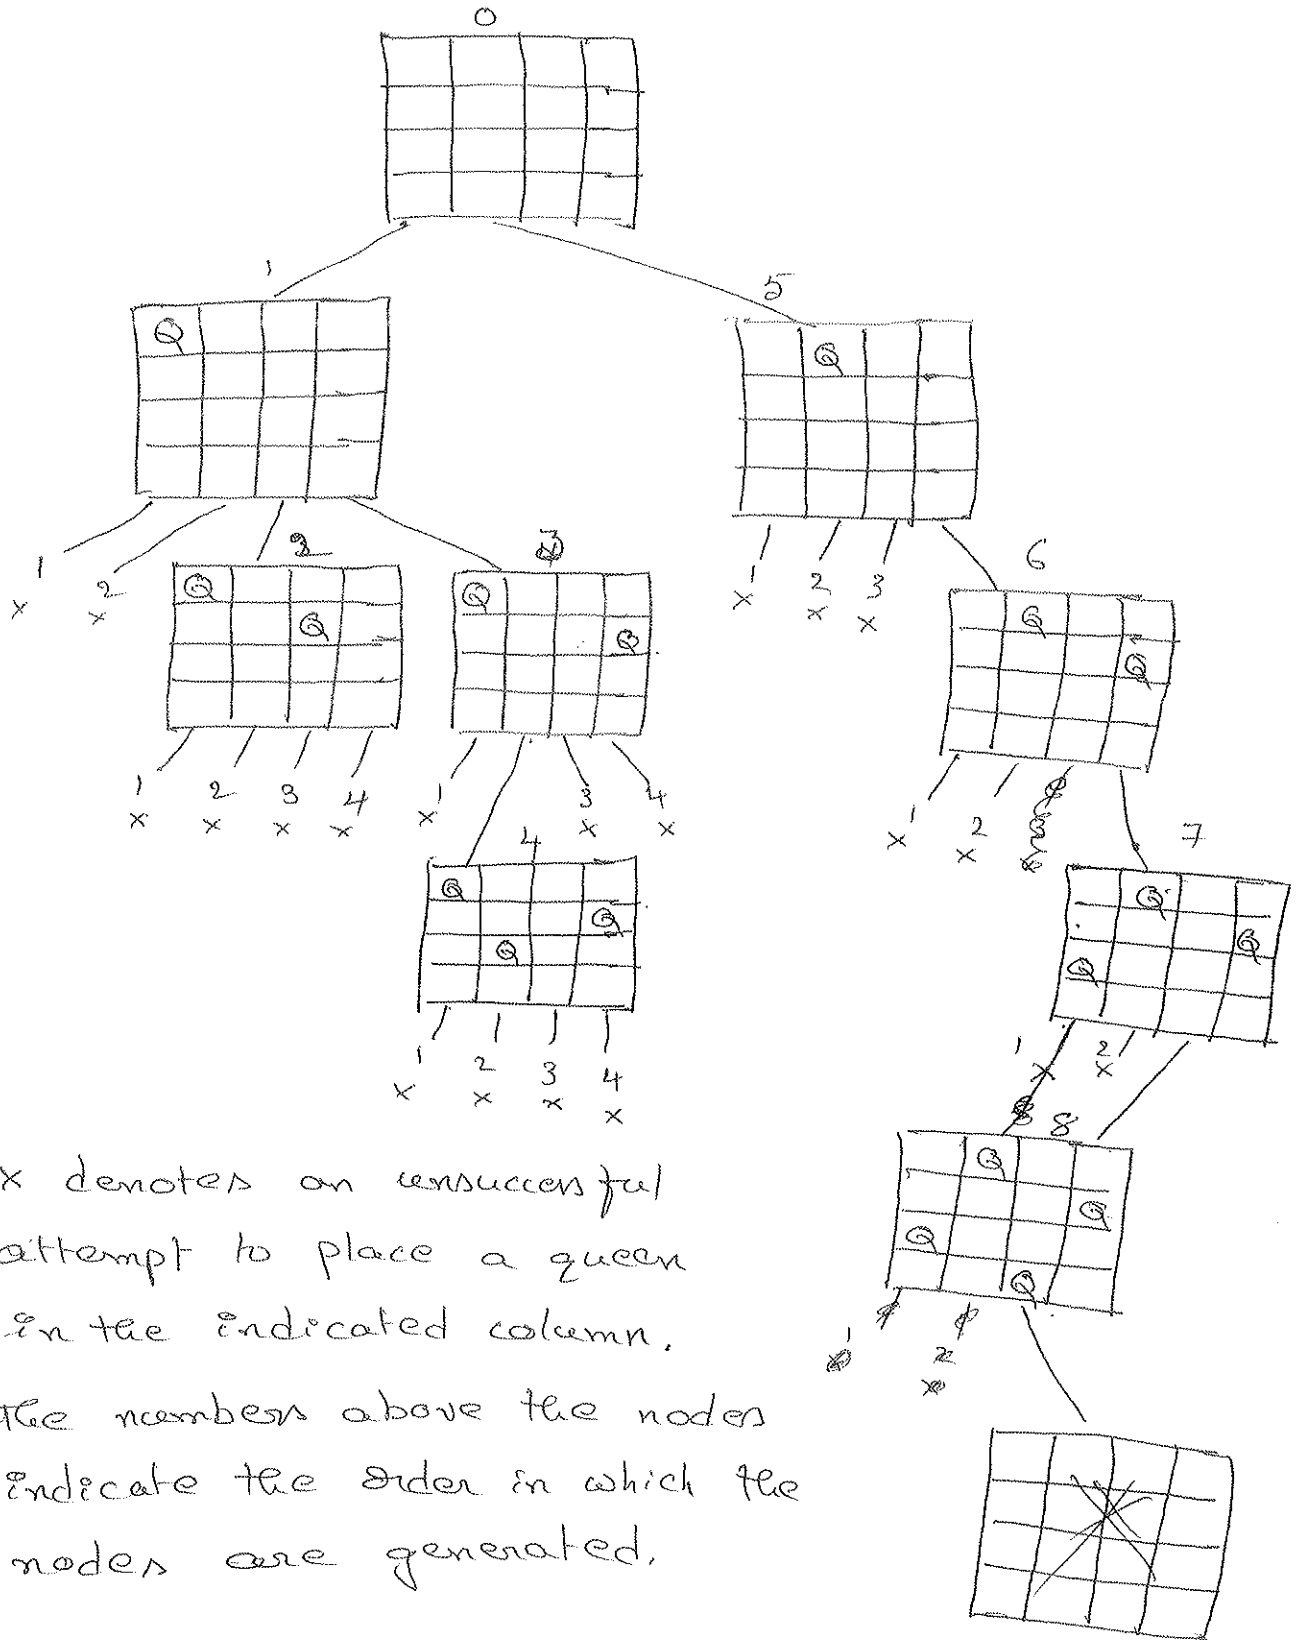 0
1
5
Q
Q
1 2 2 3
x x
1 2 3 6
x x x
Q
Q
Q
Q
Q
Q
1 2 3 4 1 3 4
x x x x x x x
1 2
x x
4
7
Q
Q
Q
Q
Q
Q
1 2 3 4
x x x x
1 2
x x
8
Q
Q
Q
Q
1 2
x denotes an unsuccessful
attempt to place a queen
in the indicated column.
The numbers above the nodes
indicate the order in which the
nodes are generated.